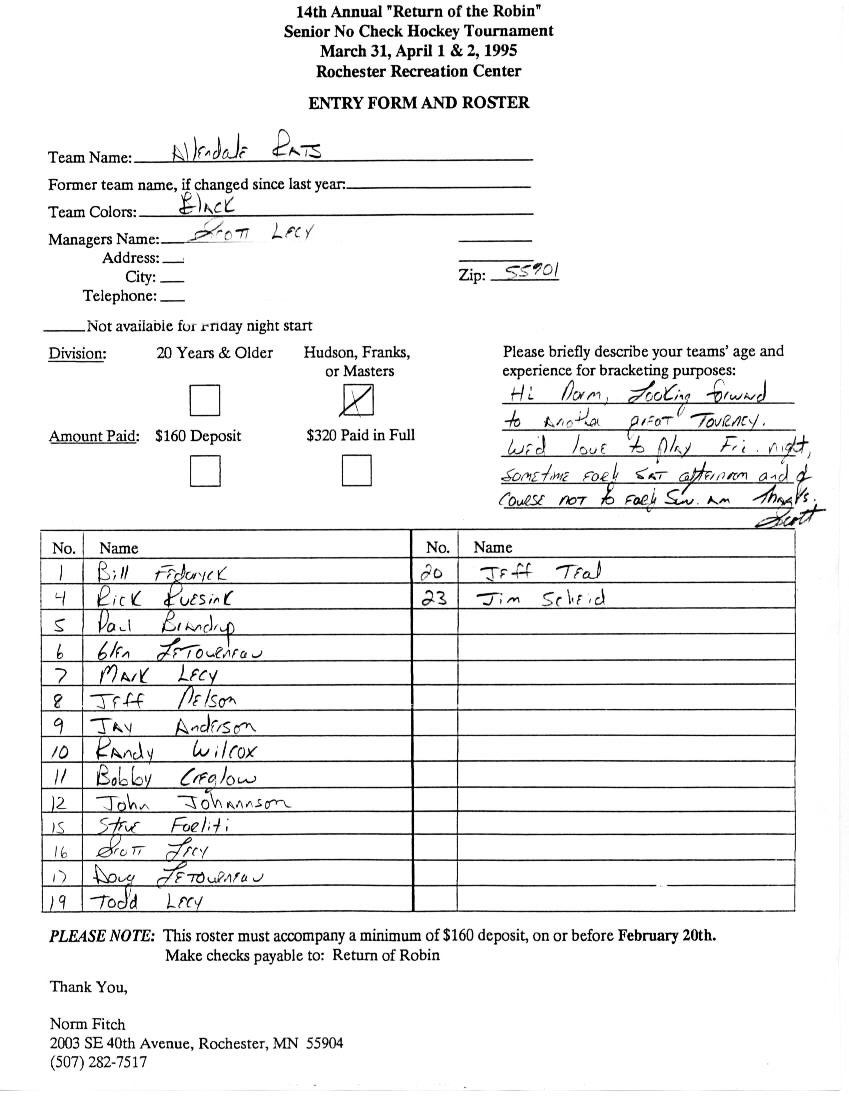 14th Annual "Return of the Robin"
Senior No Check Hockey Tournament
March 31, April 1 & 2, 1995
Rochester Recreation Center
ENTRY FORM AND ROSTER
Team Name: Allendale RATS
Former team name, if changed since last year:
Team Colors: Black
Managers Name: Scott Lecy
Address:
City: Zip: 55901
Telephone:
Not available for Friday night start
Division: 20 Years & Older Hudson, Franks, or Masters
X
Amount Paid: $160 Deposit $320 Paid in Full
Please briefly describe your teams' age and
experience for bracketing purposes:
Hi Norm, Looking forward
to another great Tourney.
We'd love to play Fri. night,
sometime early SAT afternoon and of
course not to early Sun. AM Thanks.
Scott
No. Name No. Name
1 Bill 20 Jeff Teal
4 Rick Ruesink 23 Jim Scheid
5 Paul Brandrup
6 Glen LeTourneau
7 Mark Lecy
8 Jeff Nelson
9 Jay Anderson
10 Randy Wilcox
11 Bobby Creglow
12 John Johannson
15 Steve
16 Scott Lecy
17 Doug LeTourneau
19 Todd Lecy
PLEASE NOTE: This roster must accompany a minimum of $160 deposit, on or before February 20th.
Make checks payable to: Return of Robin
Thank You,
Norm Fitch
2003 SE 40th Avenue, Rochester, MN 55904
(507) 282-7517